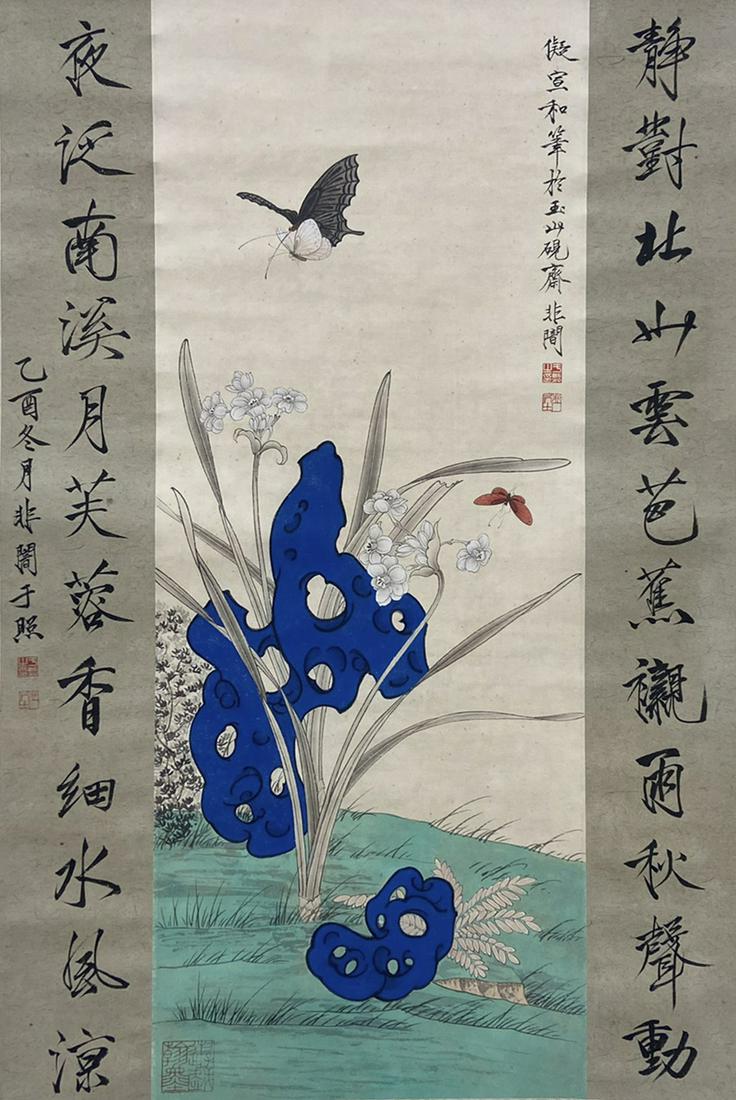 靜對北山雲芭蕉襯雨秋聲動
儗宣和筆於玉山硯齋非闇
夜泛南溪月芙蓉香細水風涼
乙酉冬月非闇于照